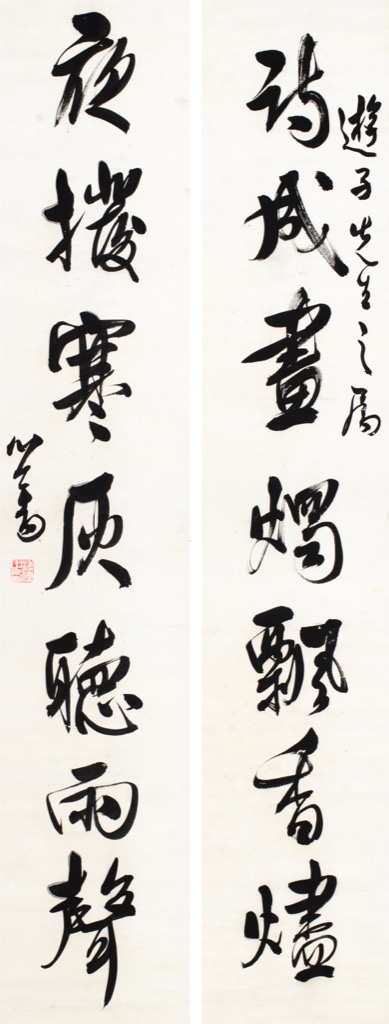 遊子先生之屬
詩成畫燭飄香燼
夜撥寒灰聽雨聲
心畬